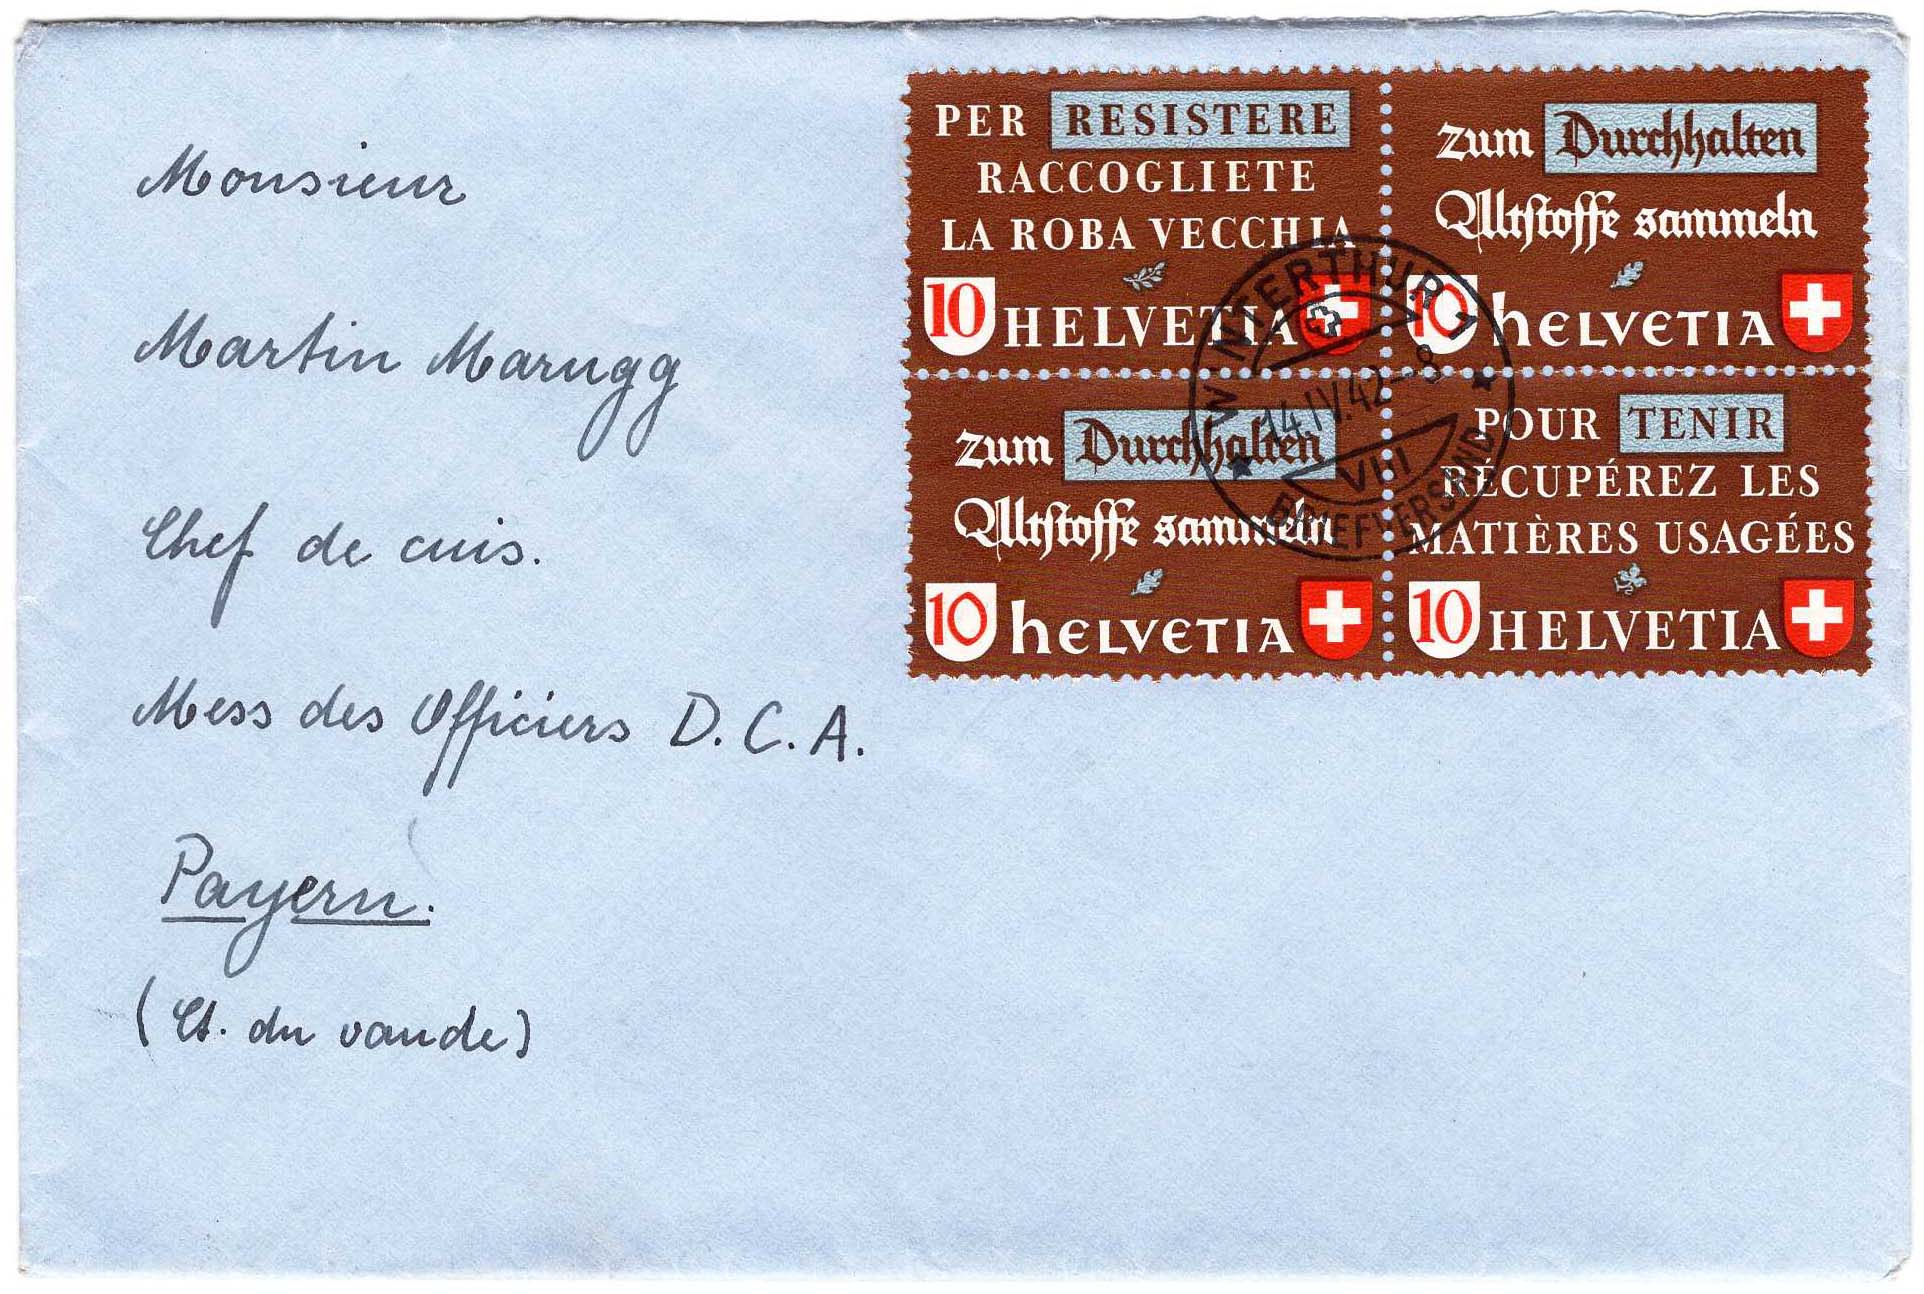 Monsieur
Martin Marugg
Chef de cuis.
Mess des Officiers D.C.A.
Payern.
(Ct. du vaude)
PER RESISTERE
RACCOGLIETE
LA ROBA VECCHIA
10 HELVETIA
zum Durchhalten
Altstoffe sammeln
10 HELVETIA
zum Durchhalten
Altstoffe sammeln
10 HELVETIA
POUR TENIR
RÉCUPÉREZ LES
MATIÈRES USAGÉES
10 HELVETIA
WINTERTHUR 1
14.IV.42–8
VIII
BRIEFVERSAND